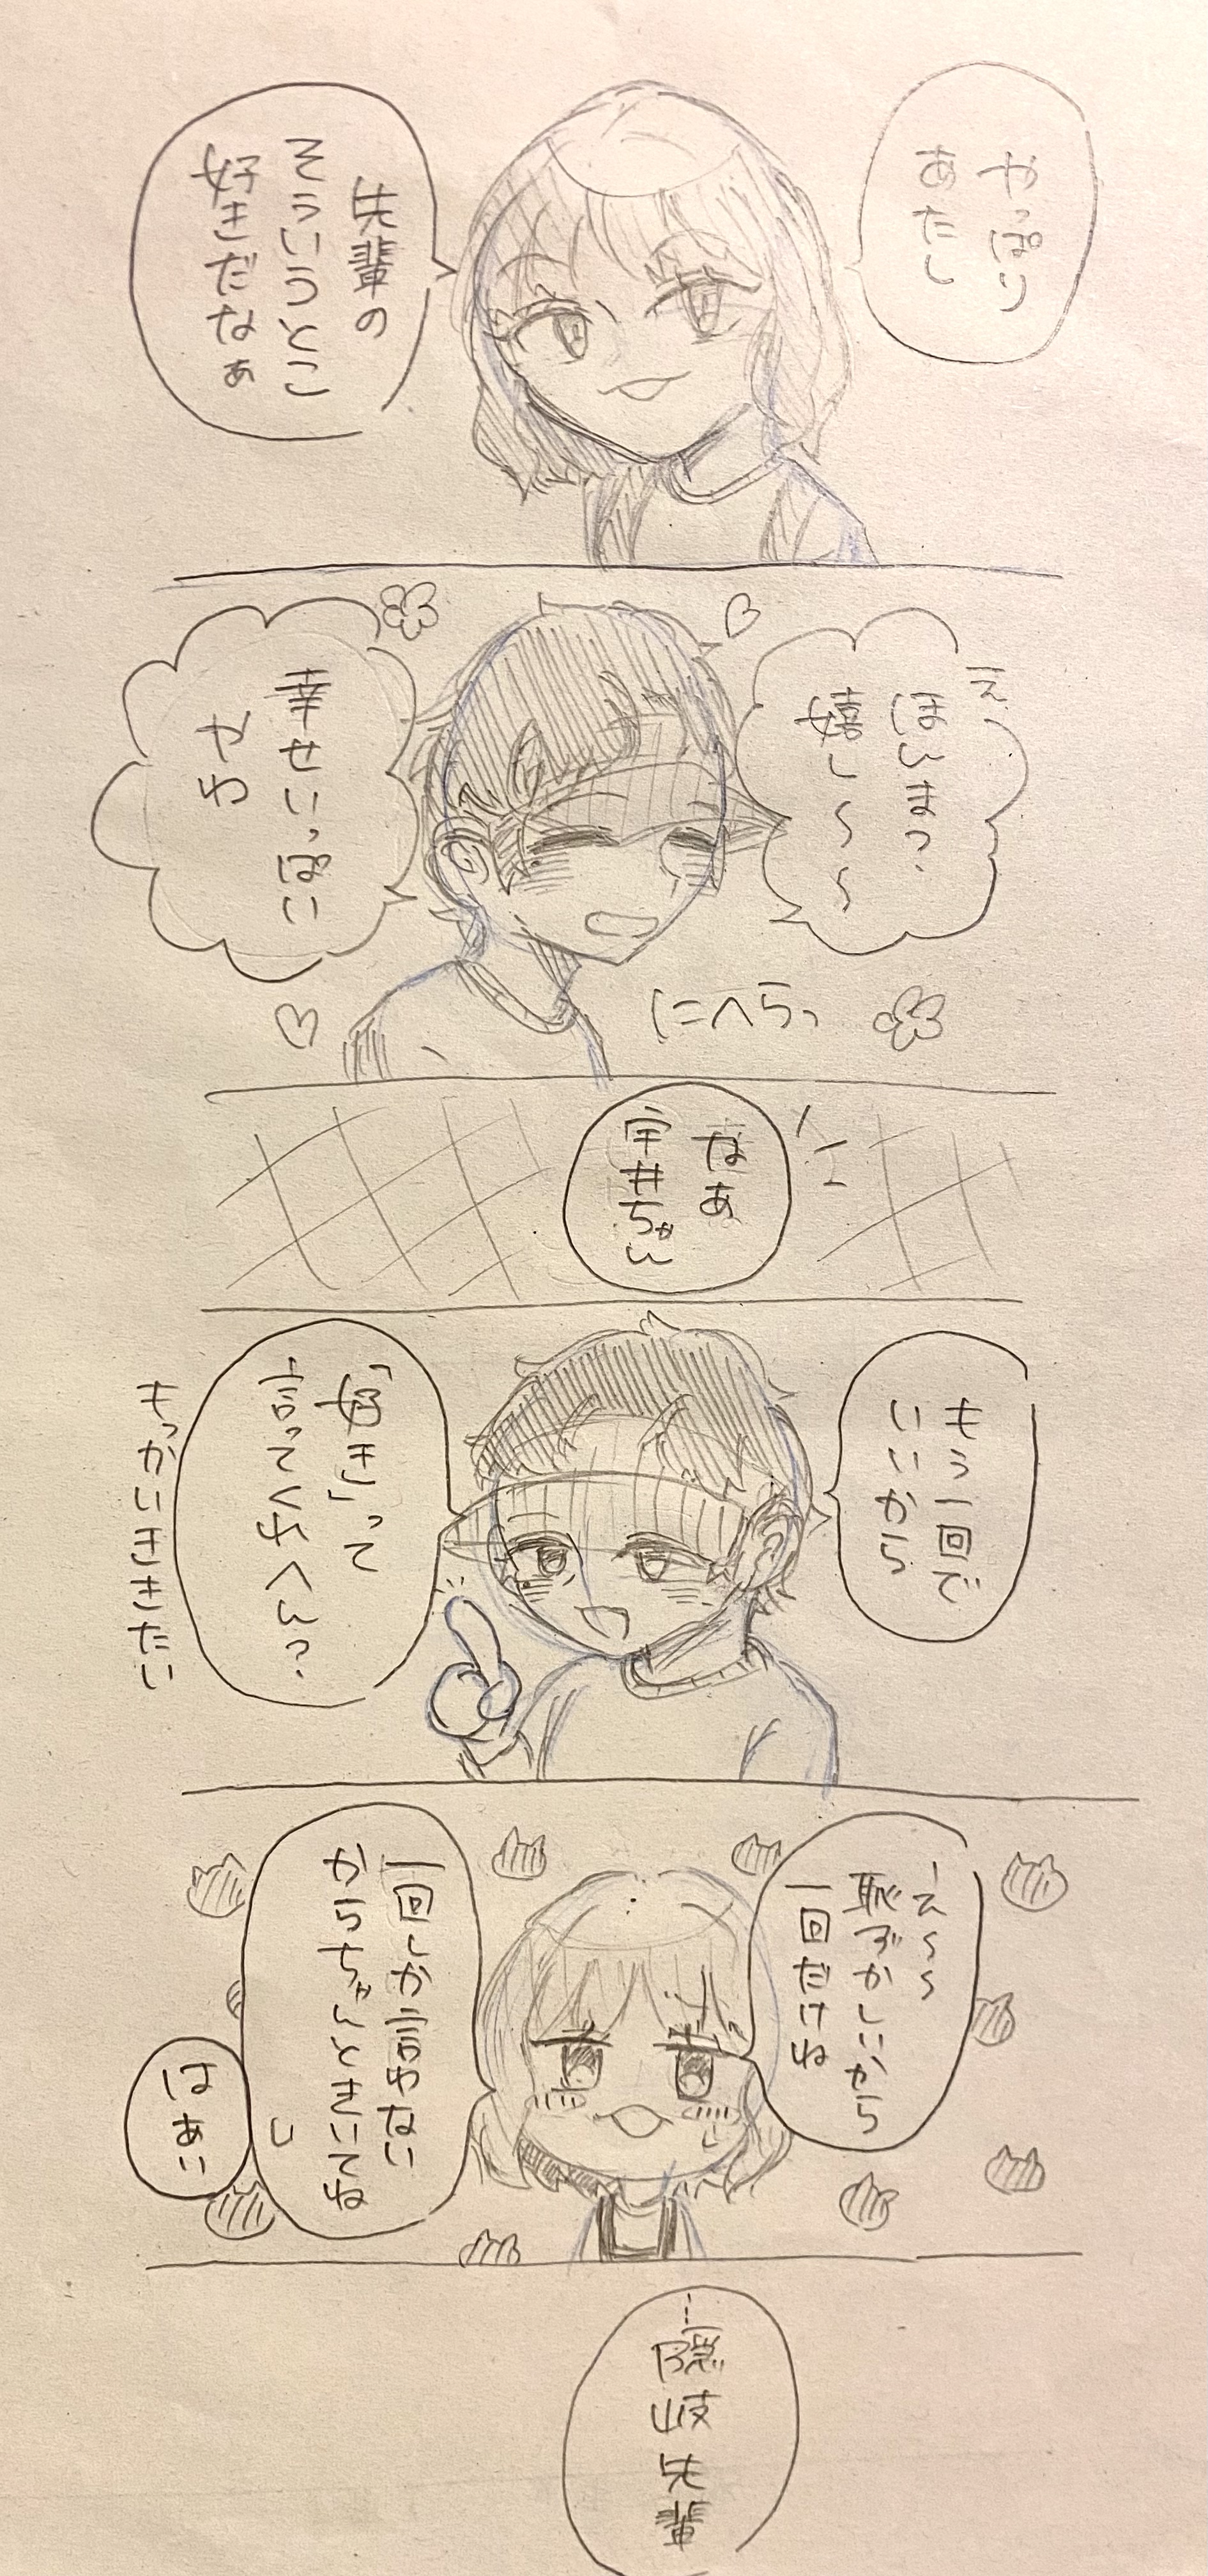 やっぱり
あたし
先輩の
そういうとこ
好きだなぁ
え、
ほんま?
嬉し〜〜
幸せいっぱい
やわ
にへらっ
なあ
宇井ちゃん
もう一回で
いいから
「好き」って
言ってくれへん?
もっかいききたい
え〜〜
恥ずかしいから
一回だけね
一回しか言わない
からちゃんときいてね
はぁい
…隠岐先輩